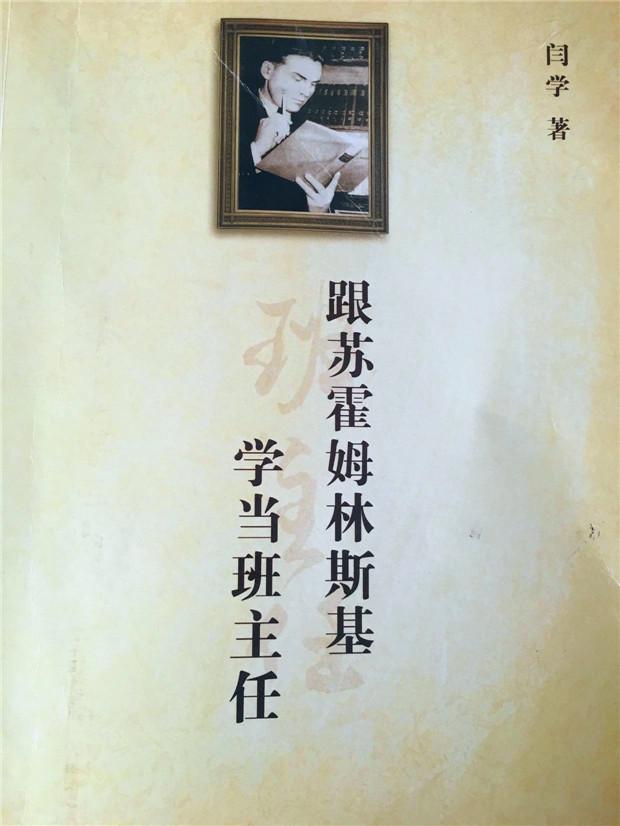 闫学 著
跟苏霍姆林斯基
学当班主任
班主任